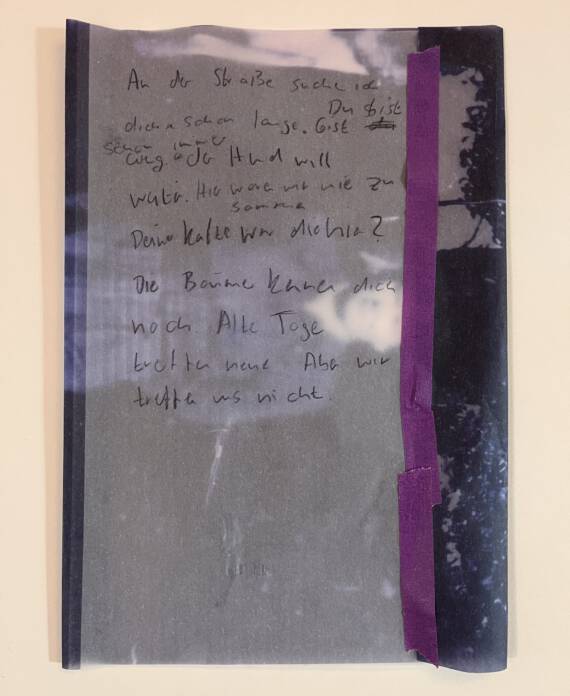 An der Straße suche ich
Du bist
dich schon lange.
schon immer
weg der Hund will
weiter. Hier waren wir nie zu
samme
Deine Kälte war dichia?
Die Bäume kennen dich
noch Alte Tage
treffen neue Aber wir
treffen uns nicht.